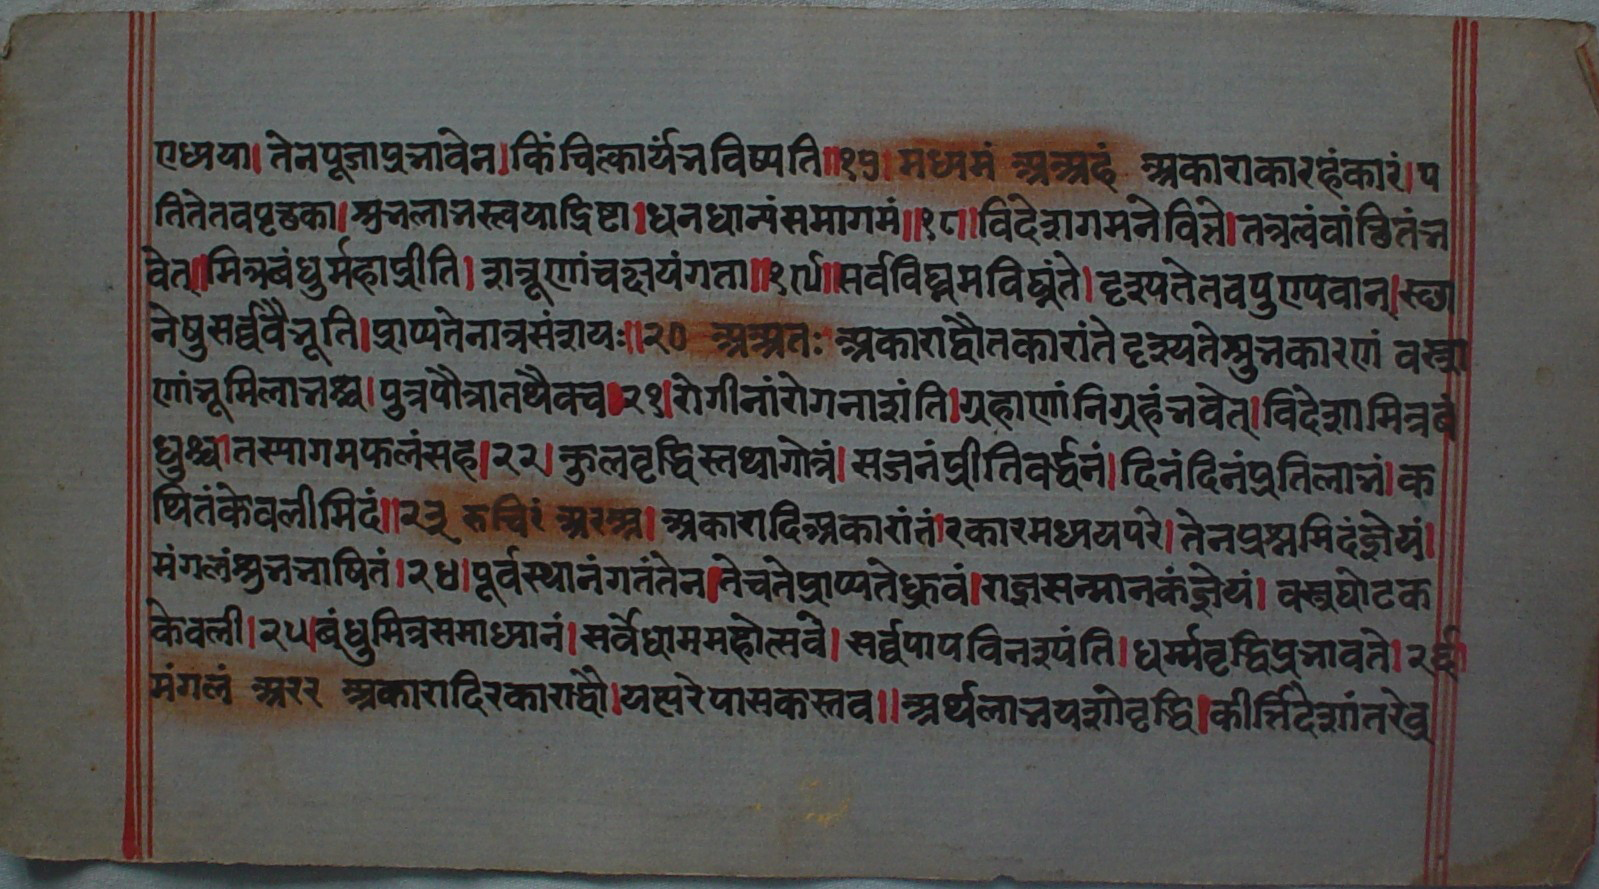 एध्यया। तेनपूजाप्रभावेन। किंचित्कार्यंभविष्यति॥१७। मध्यमं अअहं अकाराकारहंकारं। प
तितेतवपृछका। शुभलाभस्त्वयाद्रिष्टा। धनधान्यंसमागमं॥१८॥ विदेशगमनेचित्ते। तत्रत्वंवांछितंभ
वेत्॥ मित्रबंधुर्महाप्रीति। शत्रूणांचक्षयंगता॥१९॥ सर्वविघ्नमविघ्नंते। दृश्यतेतवपुण्यवान्। स्छा
नेषुसर्व्ववैभूति। प्राप्यतेनात्रसंशयः॥२० अअतः अकाराद्वौतकारांते दृश्यतेशुभकारणं वस्त्रा
णांभूमिलाभश्च। पुत्रपौत्रातथैवच।२१। रोगीनांरोगनाशंति। ग्रहाणांनिग्रहंभवेत्। विदेशामित्रबं
धुश्च। तस्यागमफलंसह।२२। कुलवृद्धिस्तथागोत्रं। सजनंप्रीतिवर्द्धनं। दिनंदिनंप्रतिलाभं। क
थितंकेवलीमिदं॥२३ रुचिरं अरअ। अकारादिअकारांतं। रकारमध्ययपरे। तेनप्रश्नमिदंज्ञेयं।
मंगलंशुभभाषितं।२४। पूर्वस्थानंगतंतेन। तेचतेप्राप्यतेध्रुवं। राजसन्मानकंज्ञेयं। वस्त्रघोटक
केवली।२५। बंधुमित्रसमाध्यानं। सर्वेधाममहोत्सवे। सर्व्वपापविनश्यंति। धर्म्मवृद्धिप्रभावते।२६।
मंगलं अरर अकारादिरकाराद्वौ। यत्परेपासकस्तव॥ अर्थलाभयशोवृद्धि। कीर्त्तिदेशांतरेव्र